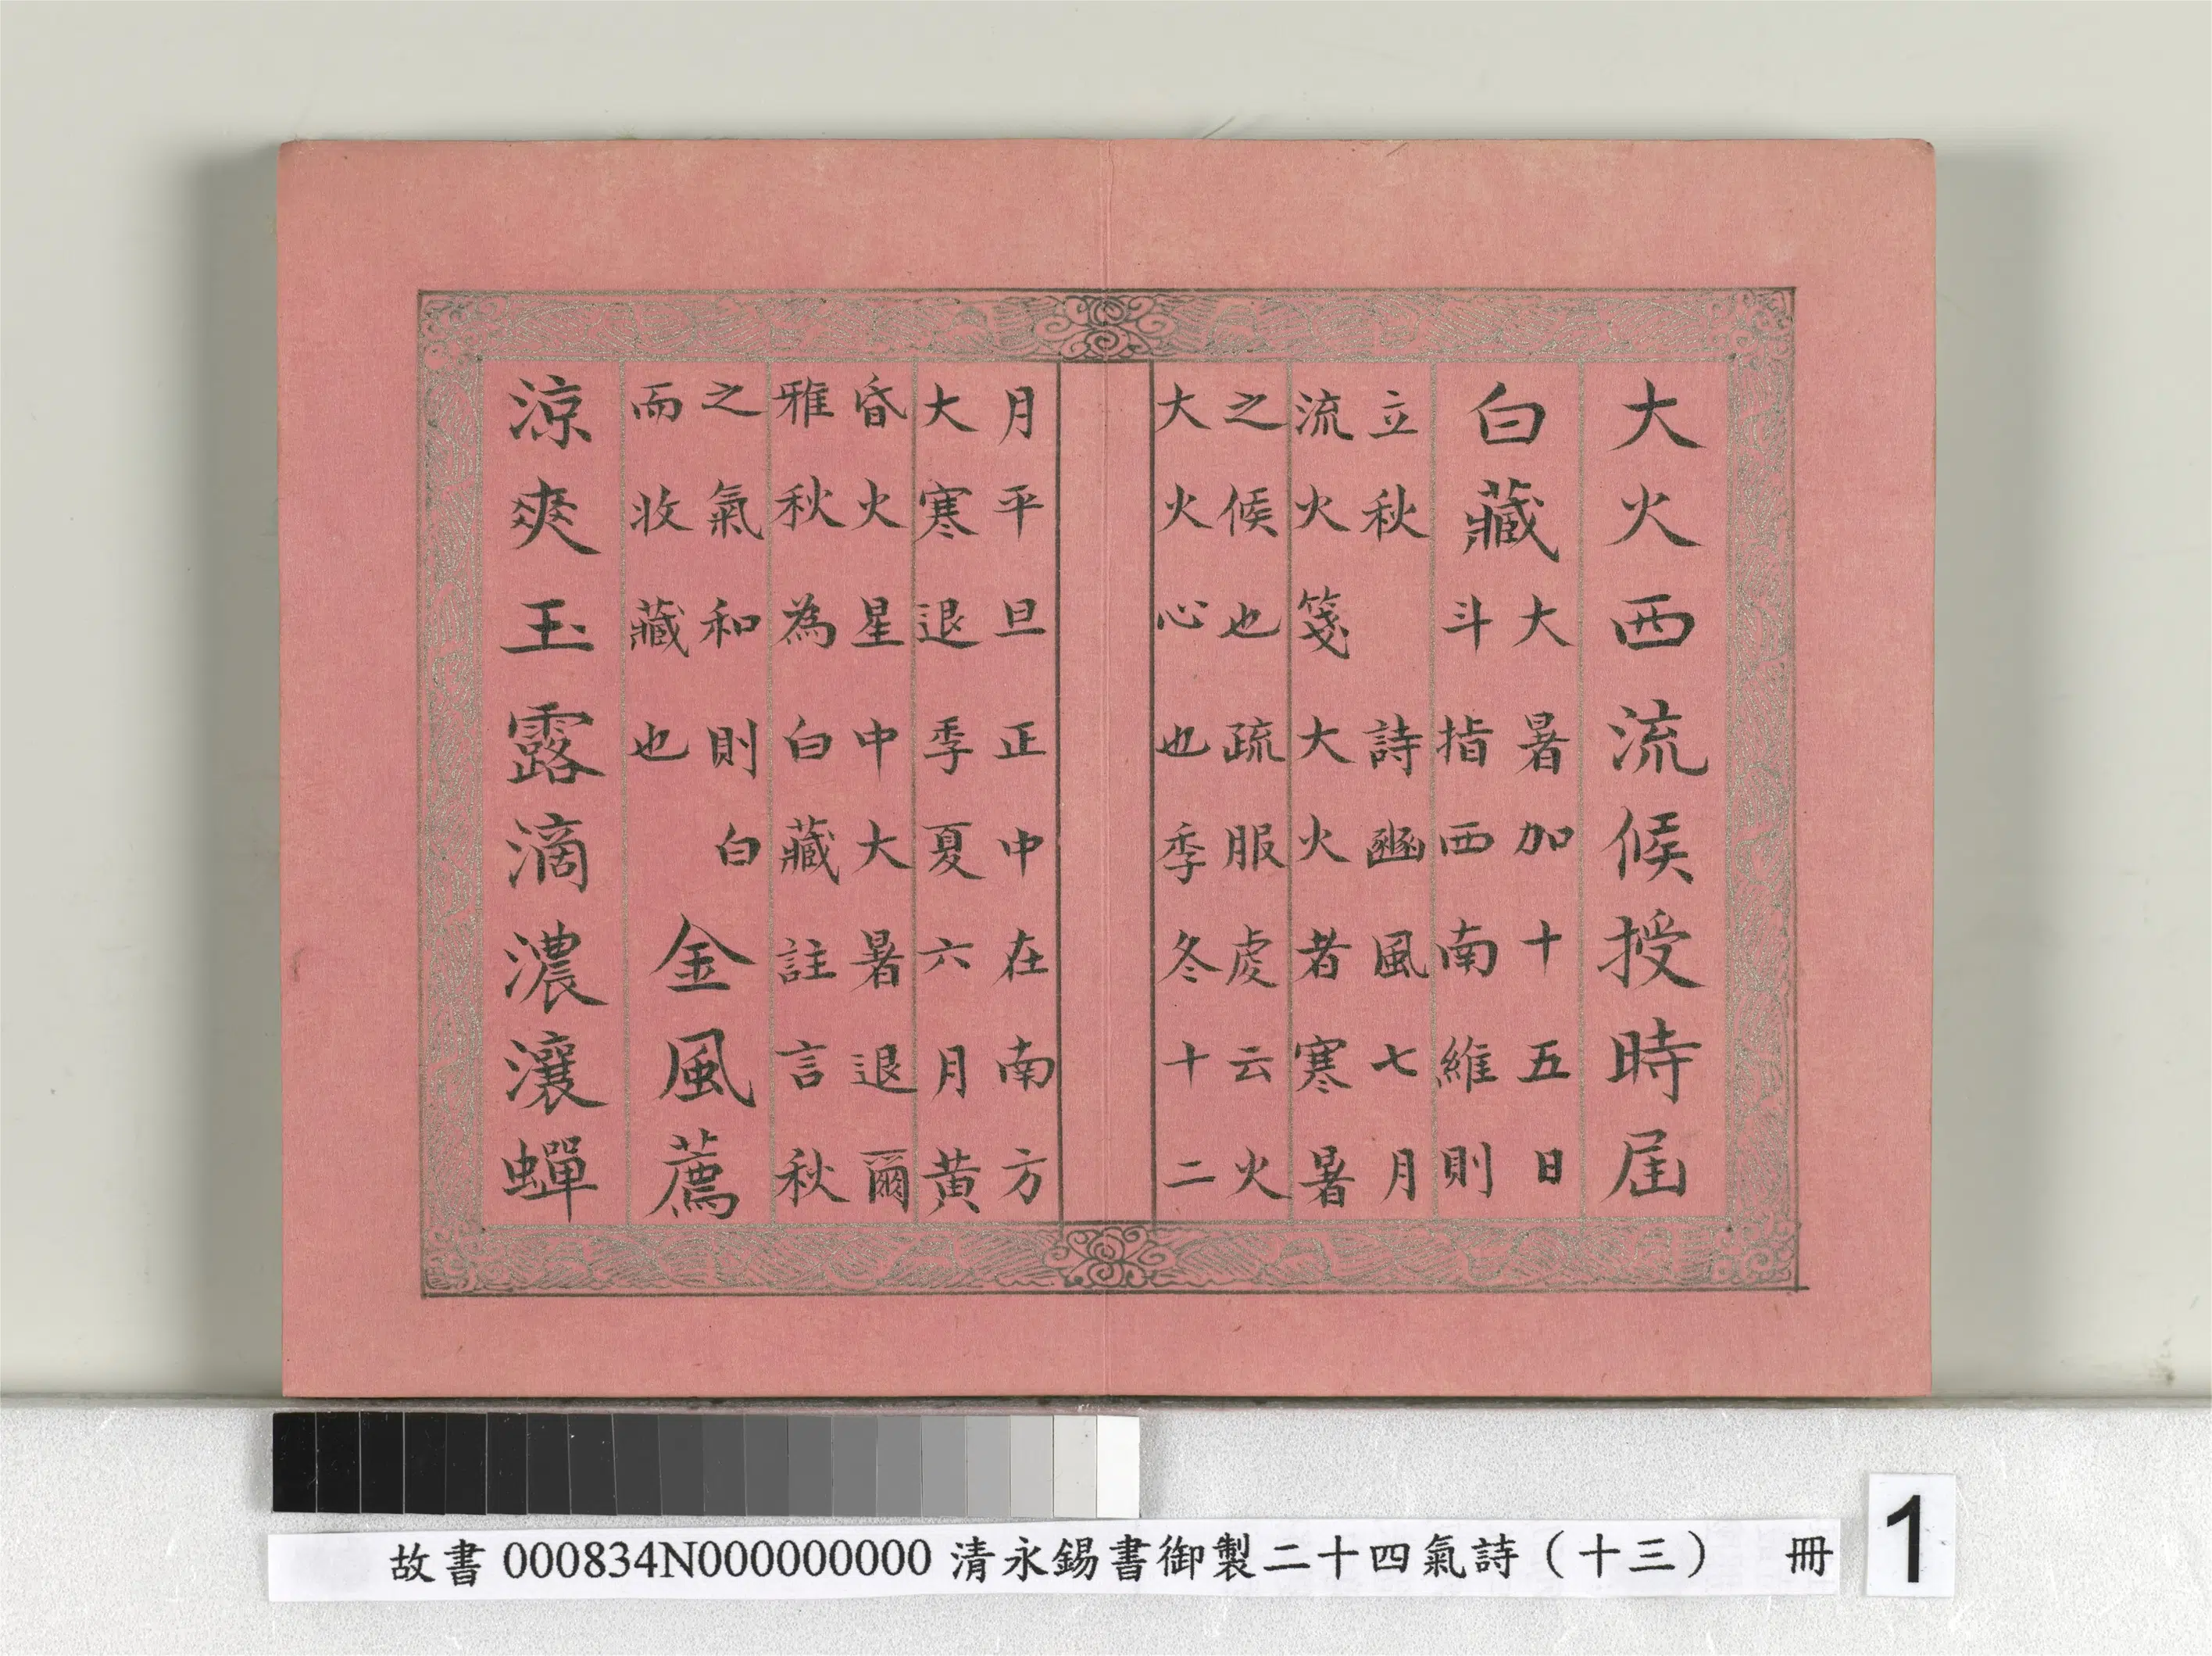 大火西流候授時屆
白藏
大暑加十五日
斗指西南維則
立秋 詩豳風七月
流火箋大火者寒暑
之候也疏服虔云火
大火心也季冬十二
月平旦正中在南方
大寒退季夏六月黄
昏火星中大暑退爾
雅秋為白藏註言秋
之氣和則白
而收藏也
金風薦
涼爽玉露滴濃瀼蟬
故書000834N000000000清永錫書御製二十四氣詩（十三） 冊
1